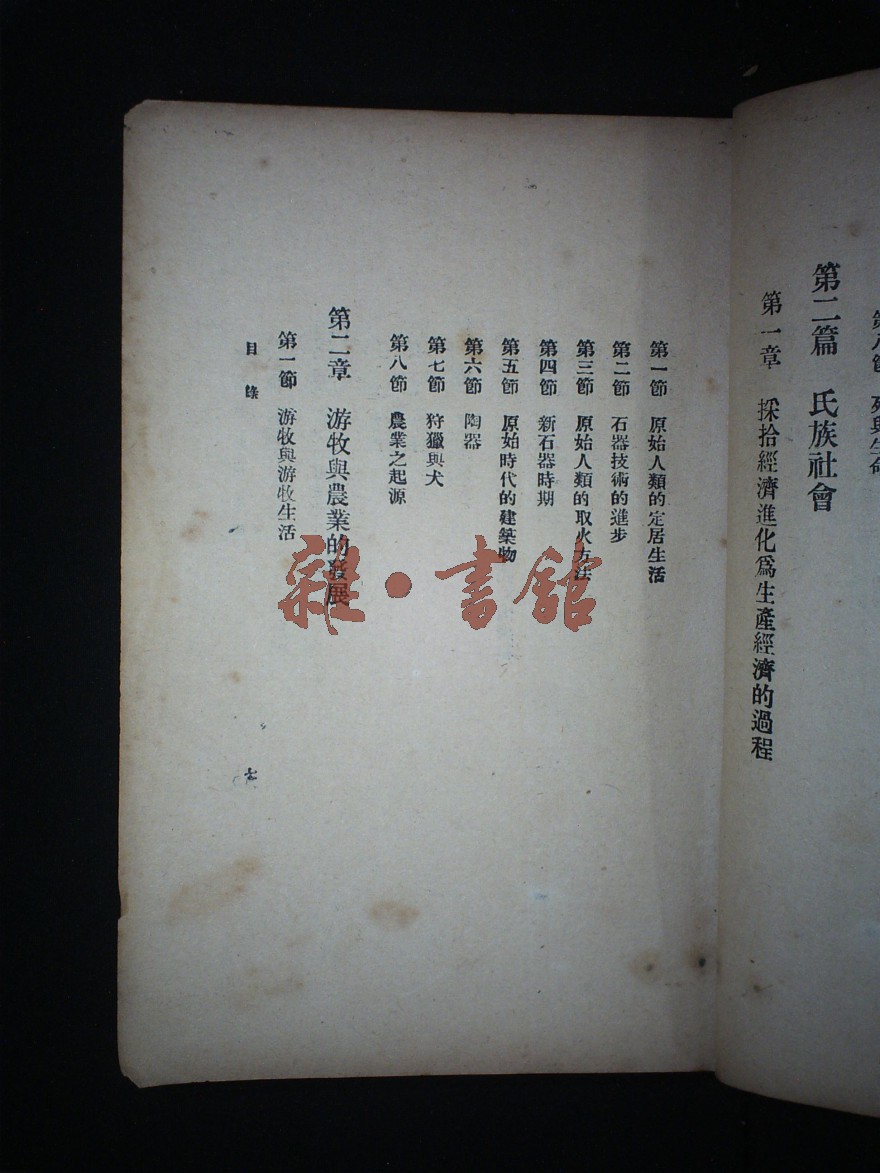 第二篇 氏族社會
第一章 採拾經濟進化爲生產經濟的過程
第一節 原始人類的定居生活
第二節 石器技術的進步
第三節 原始人類的取火方法
第四節 新石器時期
第五節 原始時代的建築物
第六節 陶器
第七節 狩獵與犬
第八節 農業之起源
第二章 游牧與農業的發展
第一節 游牧與游牧生活
目錄
雜·書館